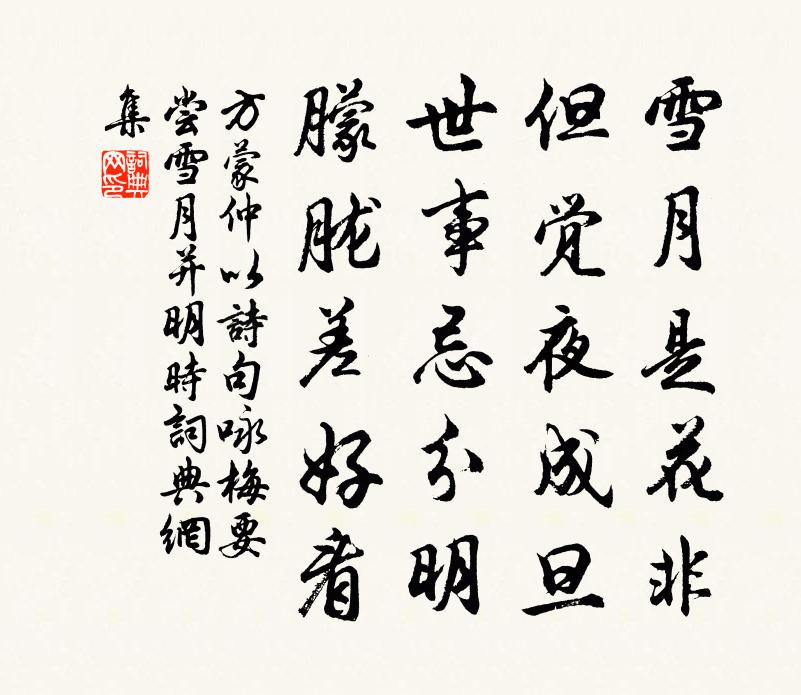 雪月是花非
但觉夜成旦
世事忌分明
朦胧差好看
方蒙仲以詩句咏梅要
尝雪月并明時詞典網
集
詞典
网印